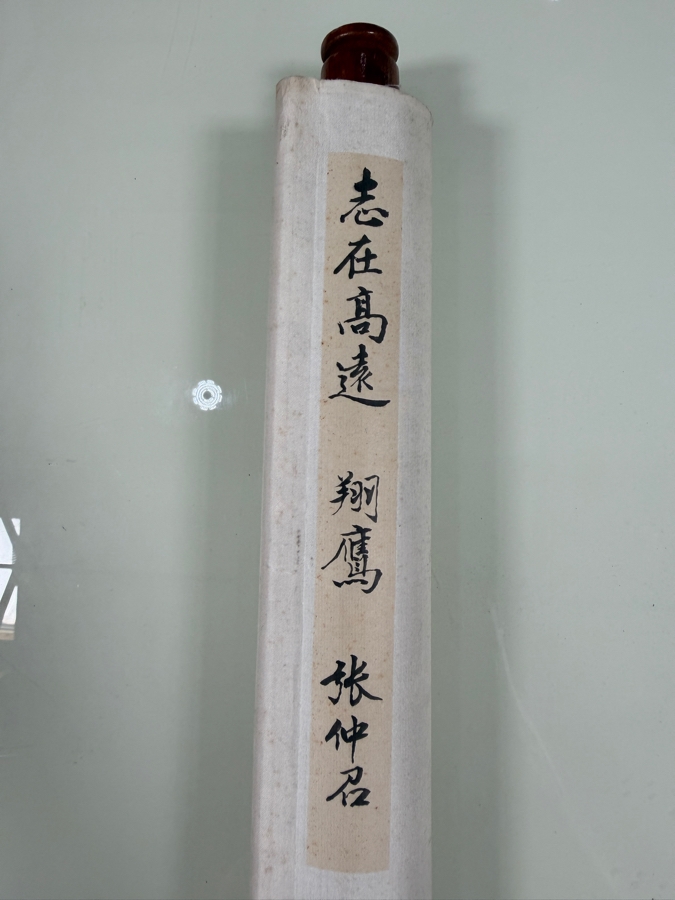 志在高遠 翔鷹 张仲召